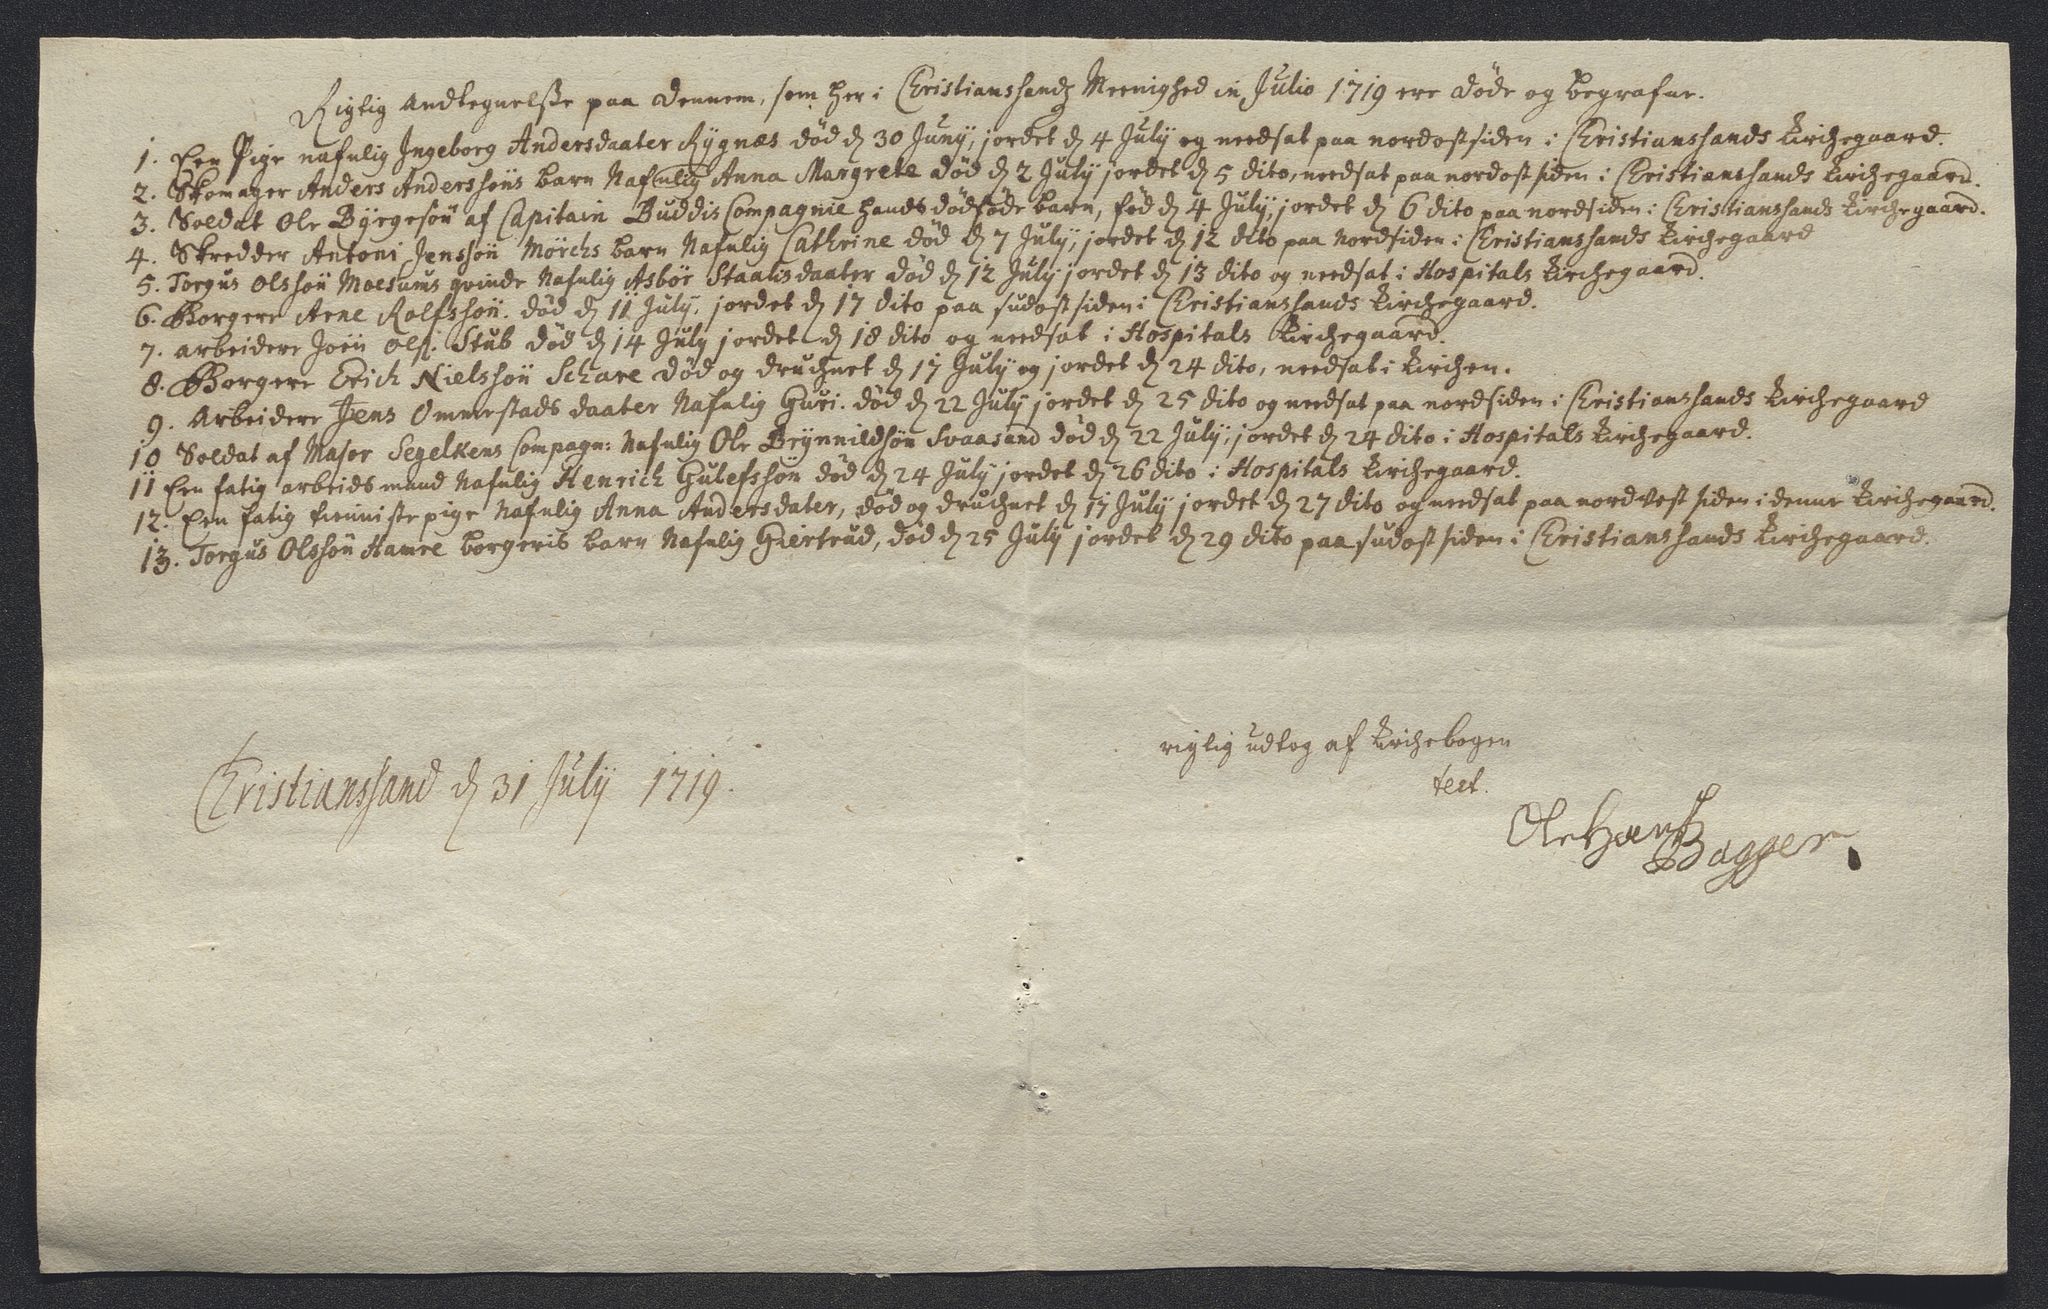 Rigtig Andtegnelsse paa dennem, som her i Christianssandz Meenighed in Julio 1719 ere døde og begrafne.
1. Een Pige nafnlig Ingeborg Andersdaater Rygnæs død d 30 Juny, jordet d 4 July og nedsat paa nordostsiden i Christianssands Kirchegaard.
2. Skomager Anders Anderssøns barn Nafnlig Anna Margrete død d 2 July jordet d 5 dito, nedsat paa nordostsiden i Christianssands Kirchegaard.
3. Soldat Ole Byrgesøn af Capitain Buddis Compagnie hands dødføde barn, fød d 4 July, jordet d 6 dito paa nordsiden i Christianssands Kirchegaard.
4. Skredder Antoni Jenssøn Mørchs barn Nafnlig Cathrine død d 7 July, jordet d 12 dito paa Nordsiden i Christianssands Kirchegaard
5. Torgus Olssøn Moesums qvinde Nafnlig Asbør Staalisdaater død d 12 July jordet d 13 dito og nedsat i Hospitals Kirchegaard.
6. Borgere Arne Rolfssøn. død d 11 July, jordet d 17 dito paa sudostsiden i Christianssands Kirchegaard.
7. arbeidere Joen Ols: Stub død d 14 July jordet d 18 dito og nedsat i Hospitals Kirchegaard.
8. Borgere Erich Nielssøn Schare død og druchnet d 17 July og jordet d 24 dito, nedsat i Kirchen.
9. Arbeidere Jens Ommestads daater Nafnlig Guri. død d 22 July jordet d 25 dito og nedsat paa nordsiden i Christianssands Kirchegaard
10 Soldat af Major Segelkens Compagn: Nafnlig Ole Brynnildsøn Svaasand død d 22 July, jordet d 24 dito i Hospitals Kirchegaard.
11 Een fatig arbeidsmand Nafnlig Henrich Gulefssøn død d 24 July jordet d 26 dito i Hospitals Kirchegaard.
12. Een fatig tienniste pige Nafnlig Anna Andersdater, død og druchnet d 17 July jordet d 27 dito og nedsat paa nordvest siden i denne Kirchegaard.
13. Torgus Olssøn Hamre borgeris barn Nafnlig Giertrud, død d 25 July jordet d 29 dito paa sudostsiden i Christianssands Kirchegaard.
rigtig udtog af Kirchebogen
test.
Christianssand d 31 July 1719.
Ole Bagger